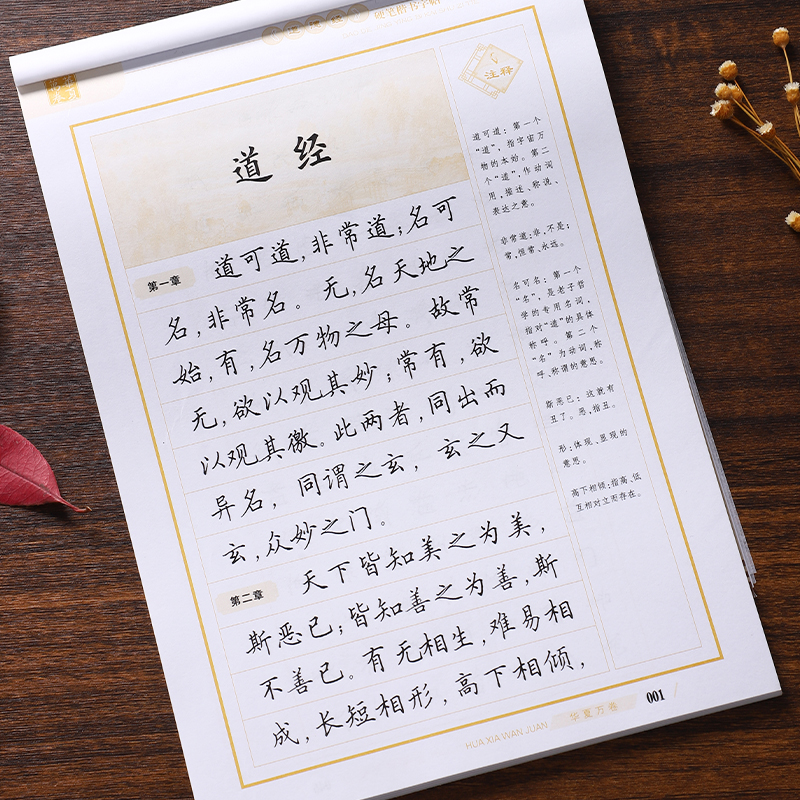 硬笔楷书字帖
道经
第一章
道可道,非常道;名可
名,非常名。无,名天地之
始,有,名万物之母。故常
无,欲以观其妙;常有,欲
以观其徼。此两者,同出而
异名,同谓之玄,玄之又
玄,众妙之门。
第二章
天下皆知美之为美,
斯恶已;皆知善之为善,斯
不善已。有无相生,难易相
成,长短相形,高下相倾,
注释
道可道:第一个
“道”,指宇宙万
物的本始。第二
个“道”,作动词
用,描述、称说、
表达之意。
非常道:非,不是;
常,恒常、永远。
名可名:第一个
“名”,是老子哲
学的专用名词,
指对“道”的具体
称呼。第二个
“名”为动词,称
呼、称谓的意思。
斯恶已:这就有
丑了。恶,指丑。
形:体现、显现的
意思。
高下相倾:指高、低
互相对立而存在。
HUA XIA WAN JUAN
华夏万卷
001